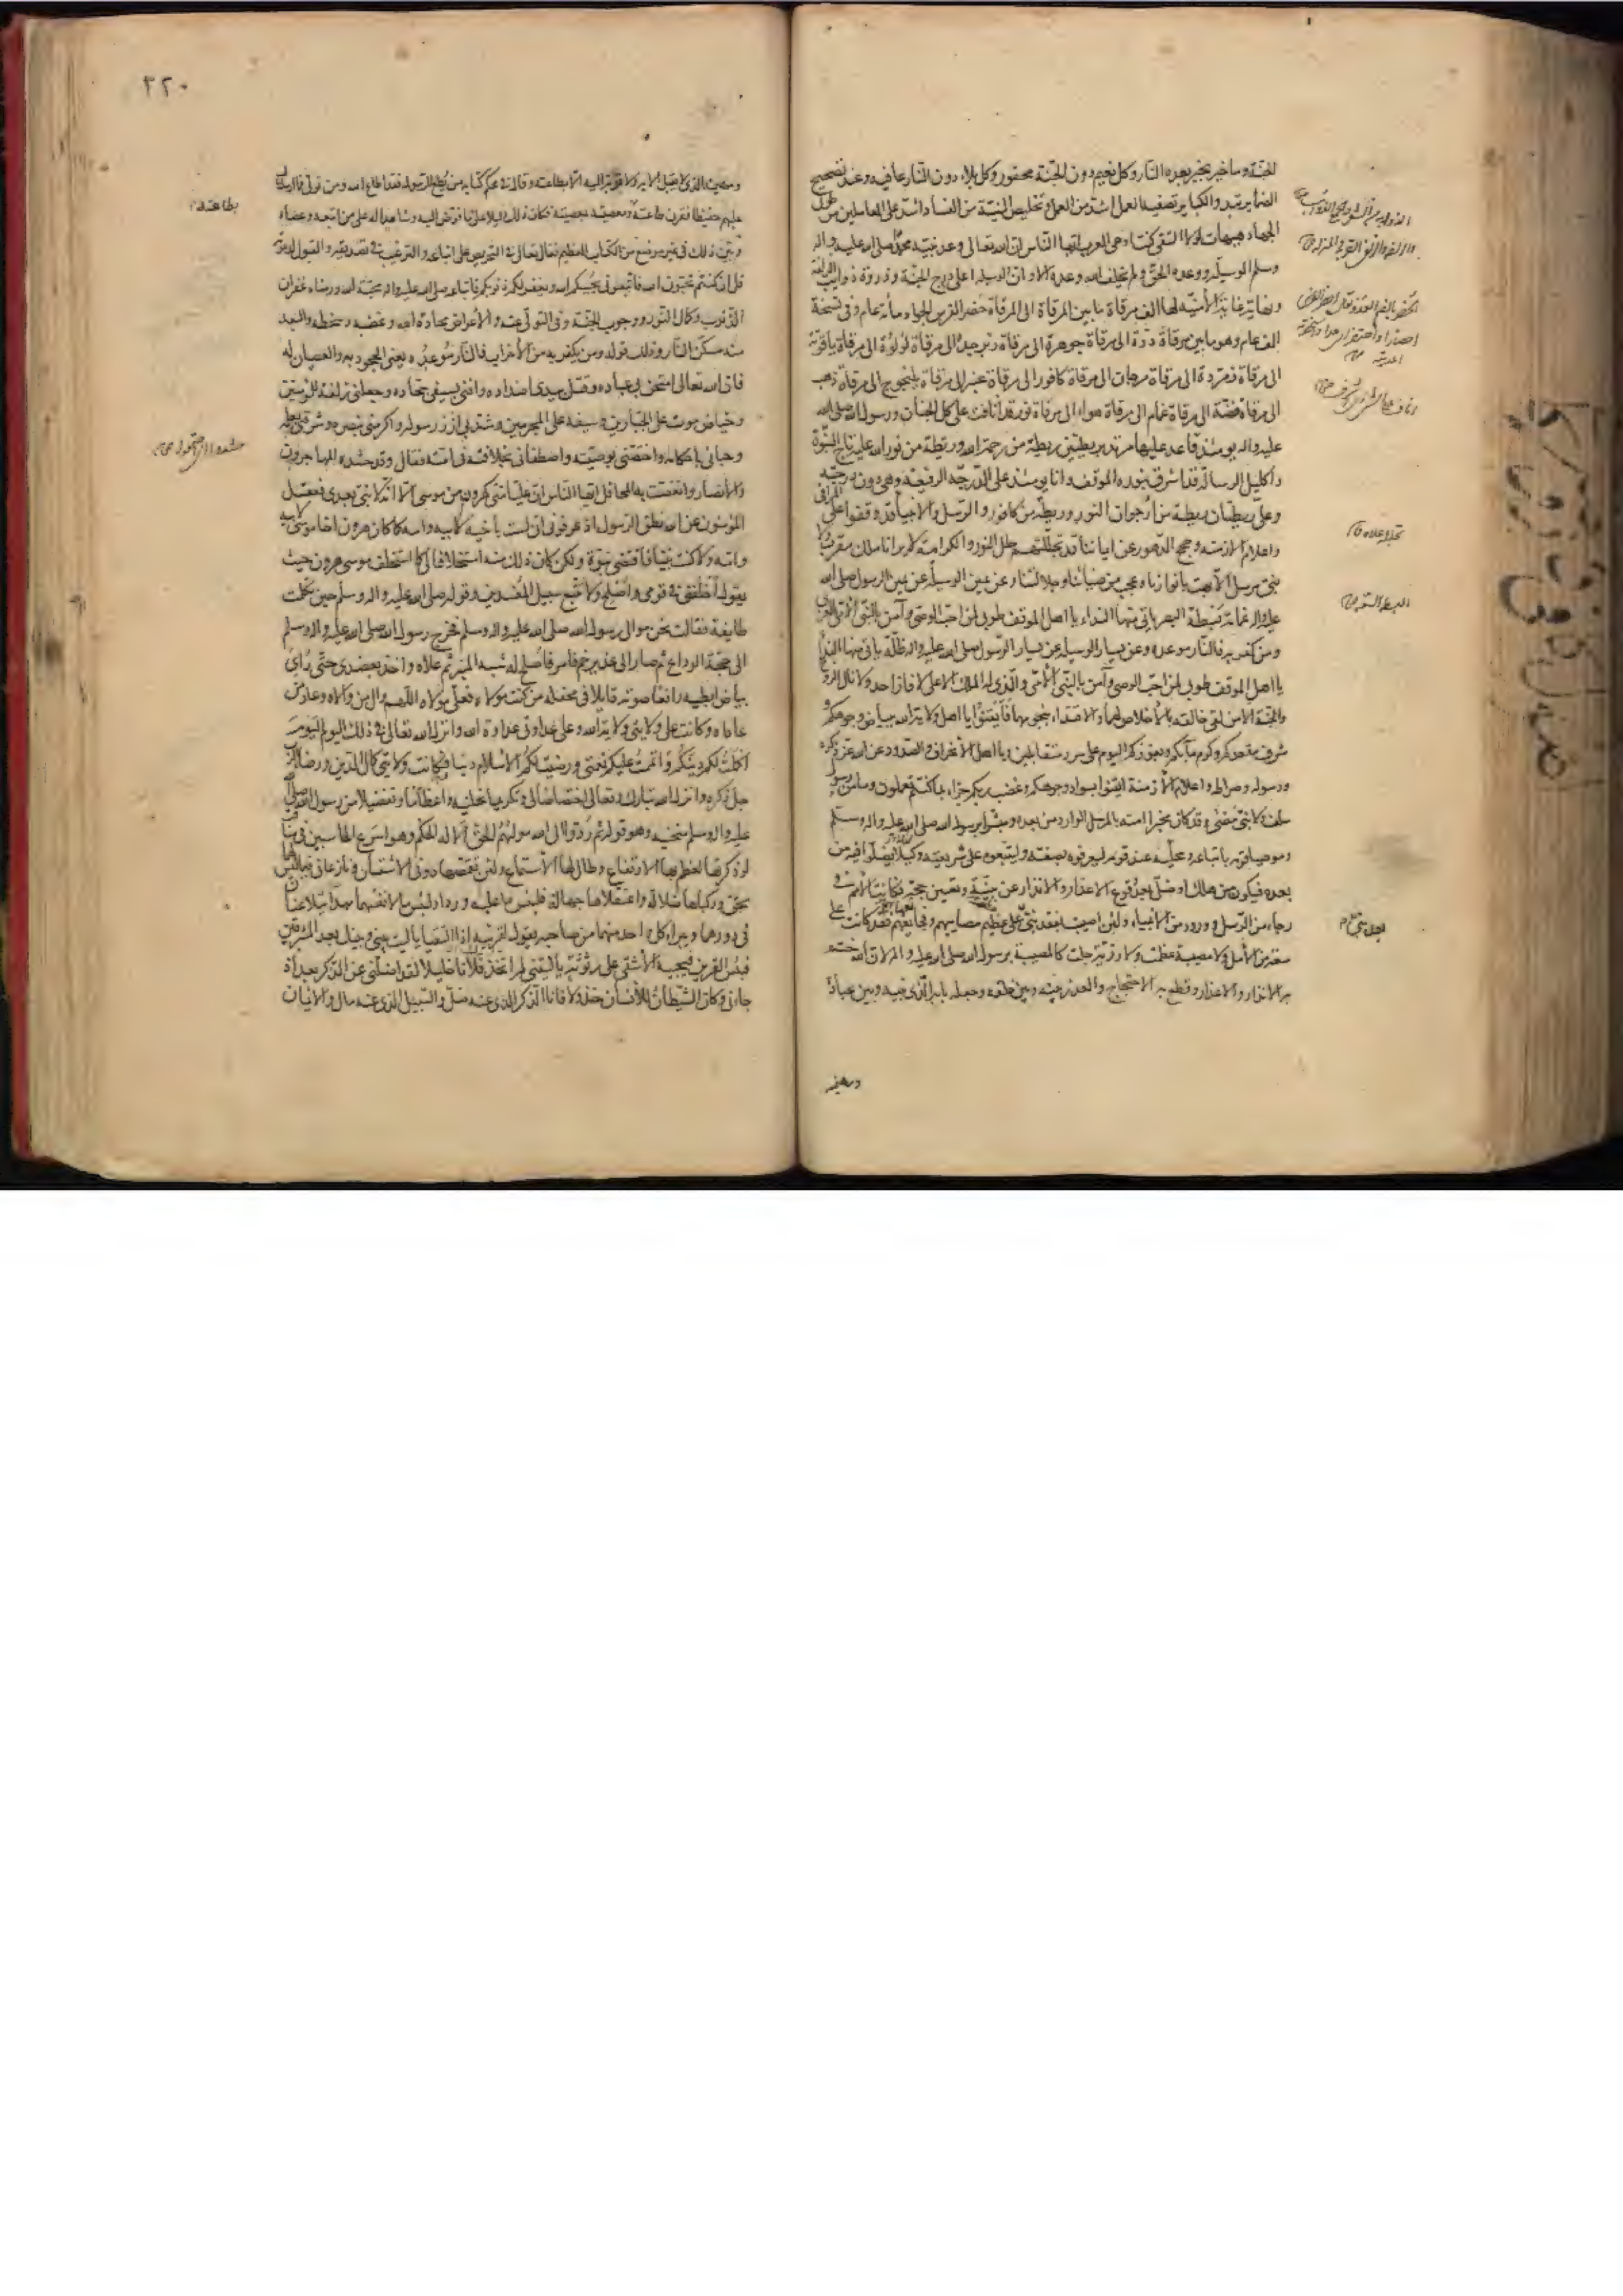 الجنّة وما خير بخير بعده النار وكل نعيم دون الجنّة محقور وكل بلاء دون النار عافية وعند تصحيح
الضماير تبدو الكباير تصفية العمل اشد من العمل وتخليص النيّة من الفساد اشدّ على العاملين من طول
الجهاد هيهات لولا التقى كنت ادهى العرب ايها الناس ان الله تعالى وعد نبيّه محمّدا صلى الله عليه واله
وسلم الوسيلة ووعده الحقّ ولم يخلف الله وعده الا وان الوسيلة اعلى درج الجنّة وذروة ذوايب الزلفة
ونهاية غاية الأمنيّة لها الف مرقاة ما بين المرقاة الى المرقاة حضر الفرس الجواد مأة عام وفى نسخة
الف عام وهو ما بين مرقاة درّة الى مرقاة جوهرة الى مرقاة زبرجدة الى مرقاة لؤلؤة الى مرقاة ياقوتة
الى مرقاة زمردة الى مرقاة مرجان الى مرقاة كافور الى مرقاة عنبر الى مرقاة يلنجوج الى مرقاة ذهب
الى مرقاة فضّة الى مرقاة غمام الى مرقاة هواء الى مرقاة نور قد أنافت على كل الجنان ورسول الله صلى الله
عليه واله يومئذ قاعد عليها مرتد بريطتين ريطة من رحمة الله وريطة من نور الله عليه تاج النبوّة
واكليل الرسالة قد اشرق بنوره الموقف وانا يومئذ على الدّرجة الرفيعة وهى دون درجته
وعلىّ ريطتان ريطة من أرجوان النور وريطة من كافور والرسل والانبياء قد وقفوا على المراقى
واعلام الازمنة وحجج الدّهور عن ايماننا قد تجلّلتهم حلل النور والكرامة لا يرانا ملك مقرب ولا
نبىّ مرسل الا بهت بانوارنا وعجب من ضيائنا وجلالتنا وعن يمين الوسيلة عن يمين الرسول صلى الله
عليه واله غمامة بسطة البصر ياتى منها النداء يا اهل الموقف طوبى لمن احبّ الوصى وآمن بالنبى الأمّى العربى
ومن كفر به فالنّار موعده وعن يسار الوسيلة عن يسار الرّسول صلى الله عليه واله ظلّة ياتى منها النداء
يا اهل الموقف طوبى لمن احبّ الوصى وآمن بالنبى الأمّى والّذى له الملك الاعلى لا فاز احد ولا نال الروح
والجنّة الا من لقى خالقه بالأخلاص لهما والاقتداء بنجومهما فأيقنوا يا اهل ولاية الله ببياض وجوهكم و
شرف مقعدكم وكرم مآبكم وبفوزكم اليوم على سرر متقابلين ويا اهل الأنحراف والصّدود عن الله عزّ ذكره
ورسوله وصراطه واعلام الأزمنة ايقنوا بسواد وجوهكم وغضب ربكم جزاء بما كنتم تعملون وما من رسول
سلف ولا نبىّ مضى وقد كان مخبرا امته بالمرسل الوارد من بعده ومبشرا برسول الله صلى الله عليه واله وسلم
وموصيا قومه باتباعه ومحلّيه عند قومه ليعرفوه بصفته وليتبعوه على شريعته ولكيلا يضلّوا فيه من
بعده فيكون من هلك وضلّ بعد وقوع الاعذار والانذار عن بيّنة وتعيين حجّة فكانت الأمم فى
رجاء من الرّسل وورود من الانبياء ولئن اصيبت بفقد نبىّ على عظيم مصايبهم وفجايعها بهم فقد كانت على
سعة من الأمل ولا مصيبة عظمت ولا رزيّة جلت كالمصيبة برسول الله صلى الله عليه واله لان الله ختم
به الانذار والاعذار وقطع به الاحتجاج والعذر بينه وبين خلقه وجعله بابه الّذى بينه وبين عباده
ومهيمنه
تجلله علاه ق
٢٢٠
ومهيمنه الذى لا يقبل الا به ولا قربة اليه الا بطاعته وقال فى محكم كتابه من يطع الرّسول فقد اطاع الله ومن تولّى فما ارسلناك
عليهم حفيظا فقرن طاعته بطاعته ومعصيته بمعصيته فكان ذلك دليلا على ما فوّض اليه وشاهدا له على من اتبعه وعصاه
وبيّن ذلك فى غير موضع من الكتاب العظيم فقال تعالى فى التحريص على اتباعه والترغيب فى تصديقه والقبول لدعوته
قل ان كنتم تحبّون الله فاتبعونى يحببكم الله ويغفر لكم ذنوبكم فاتباعه صلى الله عليه واله محبّة الله ورضاه غفران
الذنوب وكمال النور ووجوب الجنّة وفى التولّى عنه والأعراض محادّة الله وغضبه وسخطه والبعد
منه مسكن النار وذلك قوله ومن يكفر به من الأحزاب فالنّار موعده يعنى الجحود به والعصيان له
فان الله تعالى امتحن بى عباده وقتل بيدى اضداده وافنى بسيفى جحّاده وجعلنى زلفة للمؤمنين
وحياض موت على الجبّارين وسيفه على المجرمين وشدّ بى أزر رسوله واكرمنى بنصره وشرفنى بعلمه
وحبانى باحكامه واختصّنى بوصيّته واصطفانى بخلافته فى امّته فقال وقد حشده المهاجرون
والأنصار وانغصّت بهم المحافل ايّها النّاس انّ عليّا منّى كهرون من موسى الّا انّه لا نبىّ بعدى فعقل
المؤمنون عن الله نطق الرّسول اذ عرفونى انّى لست باخيه لابيه وامّه كما كان هرون اخا موسى لابيه
وامّه ولا كنت نبيّا فأقتضى نبوّة ولكن كان ذلك منه استخلافا لى كما استخلف موسى هرون حيث
يقول أخلفنى فى قومى وأصلح ولا تتّبع سبيل المفسدين وقوله صلى الله عليه واله وسلم حين تكلّمت
طايفة فقالت نحن موالى رسول الله صلى الله عليه واله وسلم فخرج رسول الله صلى الله عليه واله وسلم
الى حجّة الوداع ثم صار الى غدير خم فأمر فأصلح له شبه المنبر ثم علاه واخذ بعضدى حتى رأى
بياض ابطيه رافعا صوته قايلا فى محفله من كنت مولاه فعلىّ مولاه اللّهم وال من والاه وعاد من
عاداه وكانت على ولايتى ولاية الله وعلى عداوتى عداوة الله وانزل الله تعالى فى ذلك اليوم اليوم
أكملت لكم دينكم وأتممت عليكم نعمتى ورضيت لكم الأسلام دينا فكانت ولايتى كمال الدّين ورضا الرّب
جل ذكره وانزل الله تبارك وتعالى اختصاصا لى وتكريما نحلنيه واعظاما وتفضيلا من رسول الله صلى الله
عليه واله وسلم منحنيه وهو قوله ثمّ ردّوا الى الله موليهم الحقّ ألا له الحكم وهو أسرع الحاسبين فىّ مناقب
لو ذكرتها لعظم بها الارتفاع وطال لها الأستماع ولئن تقمّصها دونى الاشقيان ونازعانى فيما ليس لهما
بحق وركباها ضلالة واعتقلاها جهالة فلبئس ما عليه وردا ولبئس ما لانفسهما مهّدا يتلاعنان
فى دورهما ويبرا كل احد منهما من صاحبه يقول لقرينه اذا التقيا يا ليت بينى وبينك بعد المشرقين
فبئس القرين فيجيبه الأشقى على رثوثة يا ليتنى لم اتخذ فلانا خليلا لقد اضلّنى عن الذّكر بعد اذ
جاءنى وكان الشّيطان للأنسان خذولا فانا الذّكر الذى عنه ضلّ والسّبيل الذى عنه مال والايمان
بطاعته